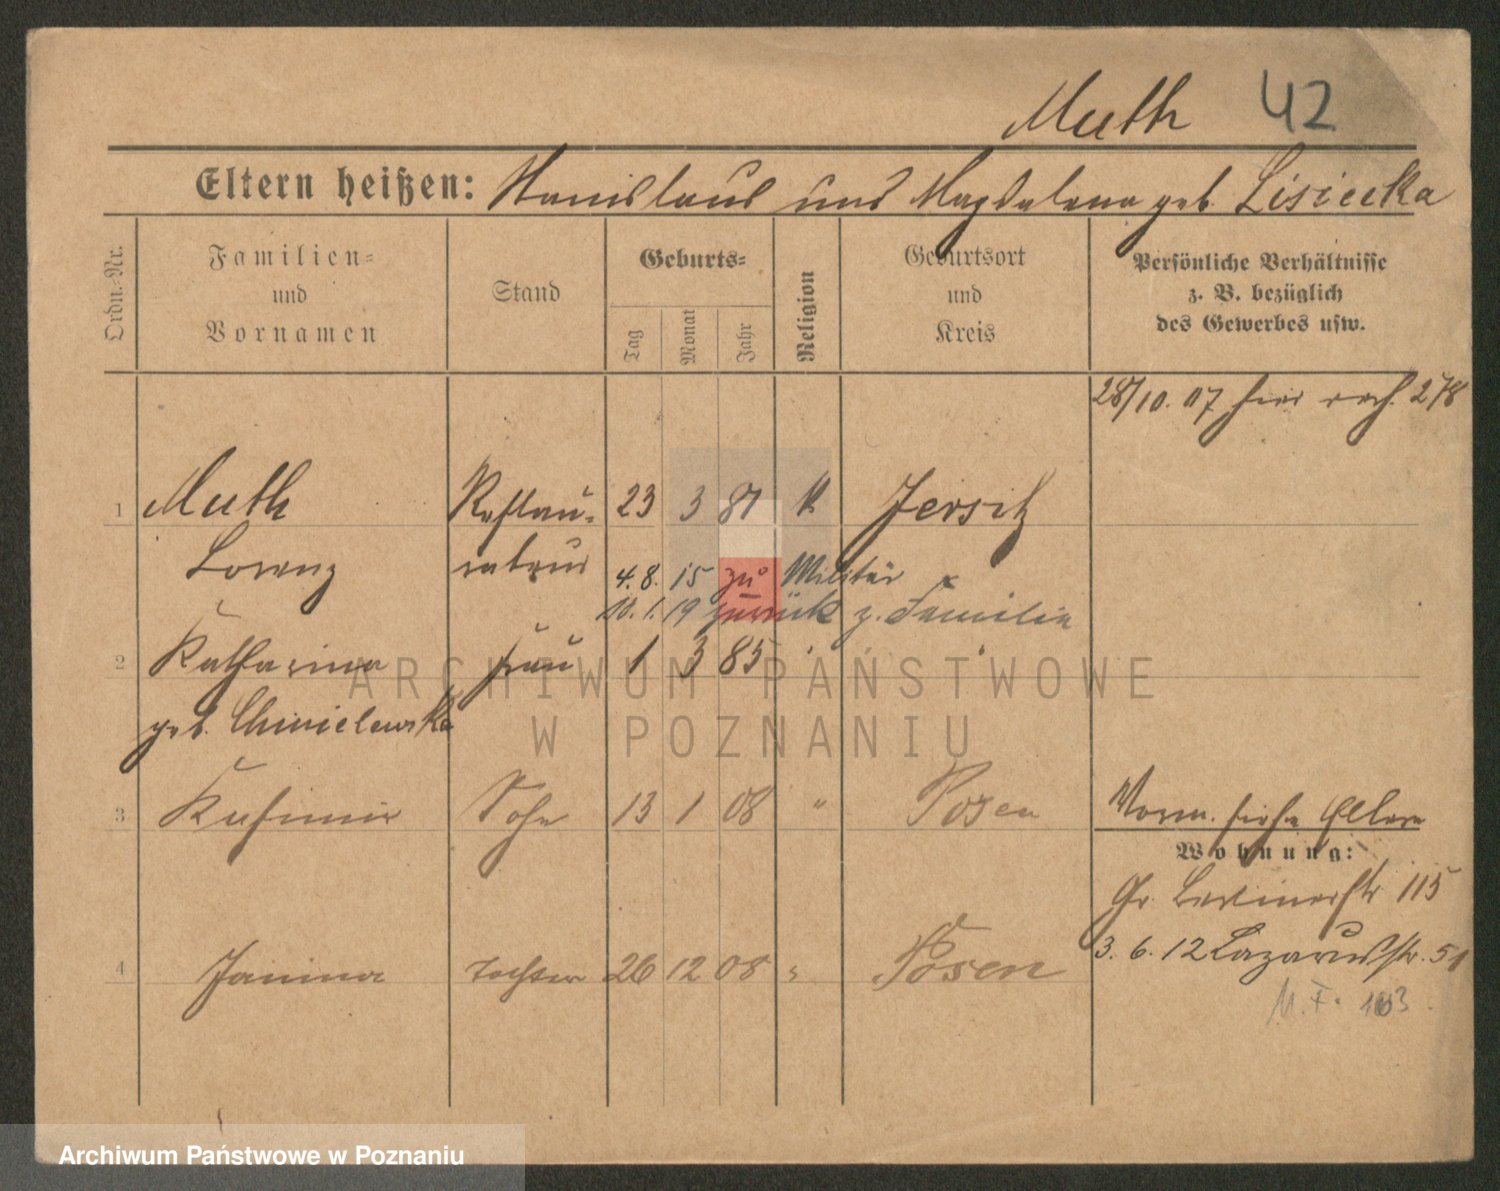 Muth 42
Eltern heißen: Stanislaus und Magdalena geb. Lisiecka
Ordn.-Nr.
Familien-
und
Vornamen
Stand
Geburts-
Tag
Monat
Jahr
Religion
Geburtsort
und
Kreis
Persönliche Verhältnisse
z. B. bezüglich
des Gewerbes usw.
28/10. 07 hier 278
1 Muth Restau- 23 3 87 k Jersitz
Lorenz rateur
4. 8. 15 zu Militär
10. 1. 19 zurück z. Familie
2 Katharina Frau 1 3 85 "
geb. Chmielewska
3 Kasimir Sohn 13 1 08 " Posen
Vorm. siehe Eltern
Wohnung:
Gr. Berlinerstr 115
4 Janina Tochter 26 12 08 " Posen
3. 6. 12 Lazarusstr. 51
M. F. 103.
ARCHIWUM PAŃSTWOWE
W POZNANIU
Archiwum Państwowe w Poznaniu